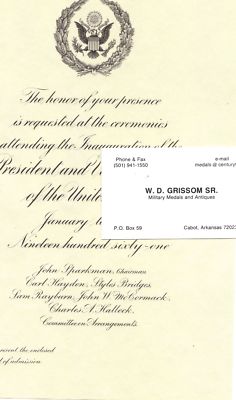 The honor of your presence
is requested at the ceremonies
attending the Inauguration of the
President and
of the United
January
Nineteen hundred sixty-one
John Sparkman, Chairman
Carl Hayden, Styles Bridges,
Sam Rayburn, John W. McCormack,
Charles A. Halleck,
Committee on Arrangements.
present the enclosed
of admission.
Phone & Fax
(501) 941-1550
e-mail
medals @ century
W. D. GRISSOM SR.
Military Medals and Antiques
P.O. Box 59
Cabot, Arkansas